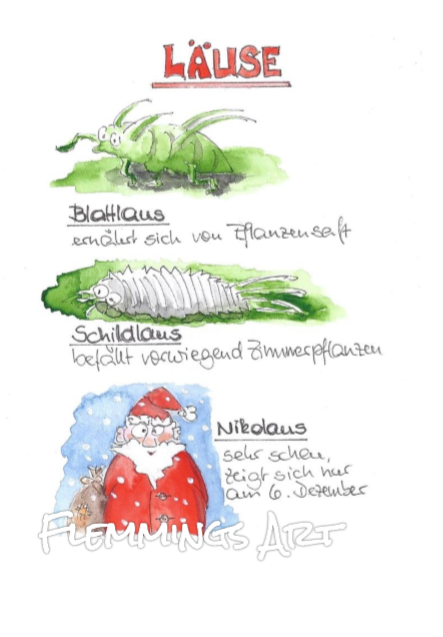 LÄUSE
Blattlaus
ernährt sich von Pflanzensaft
Schildlaus
befällt vorwiegend Zimmerpflanzen
Nikolaus
sehr scheu,
zeigt sich nur
am 6. Dezember
FLEMMINGS ART